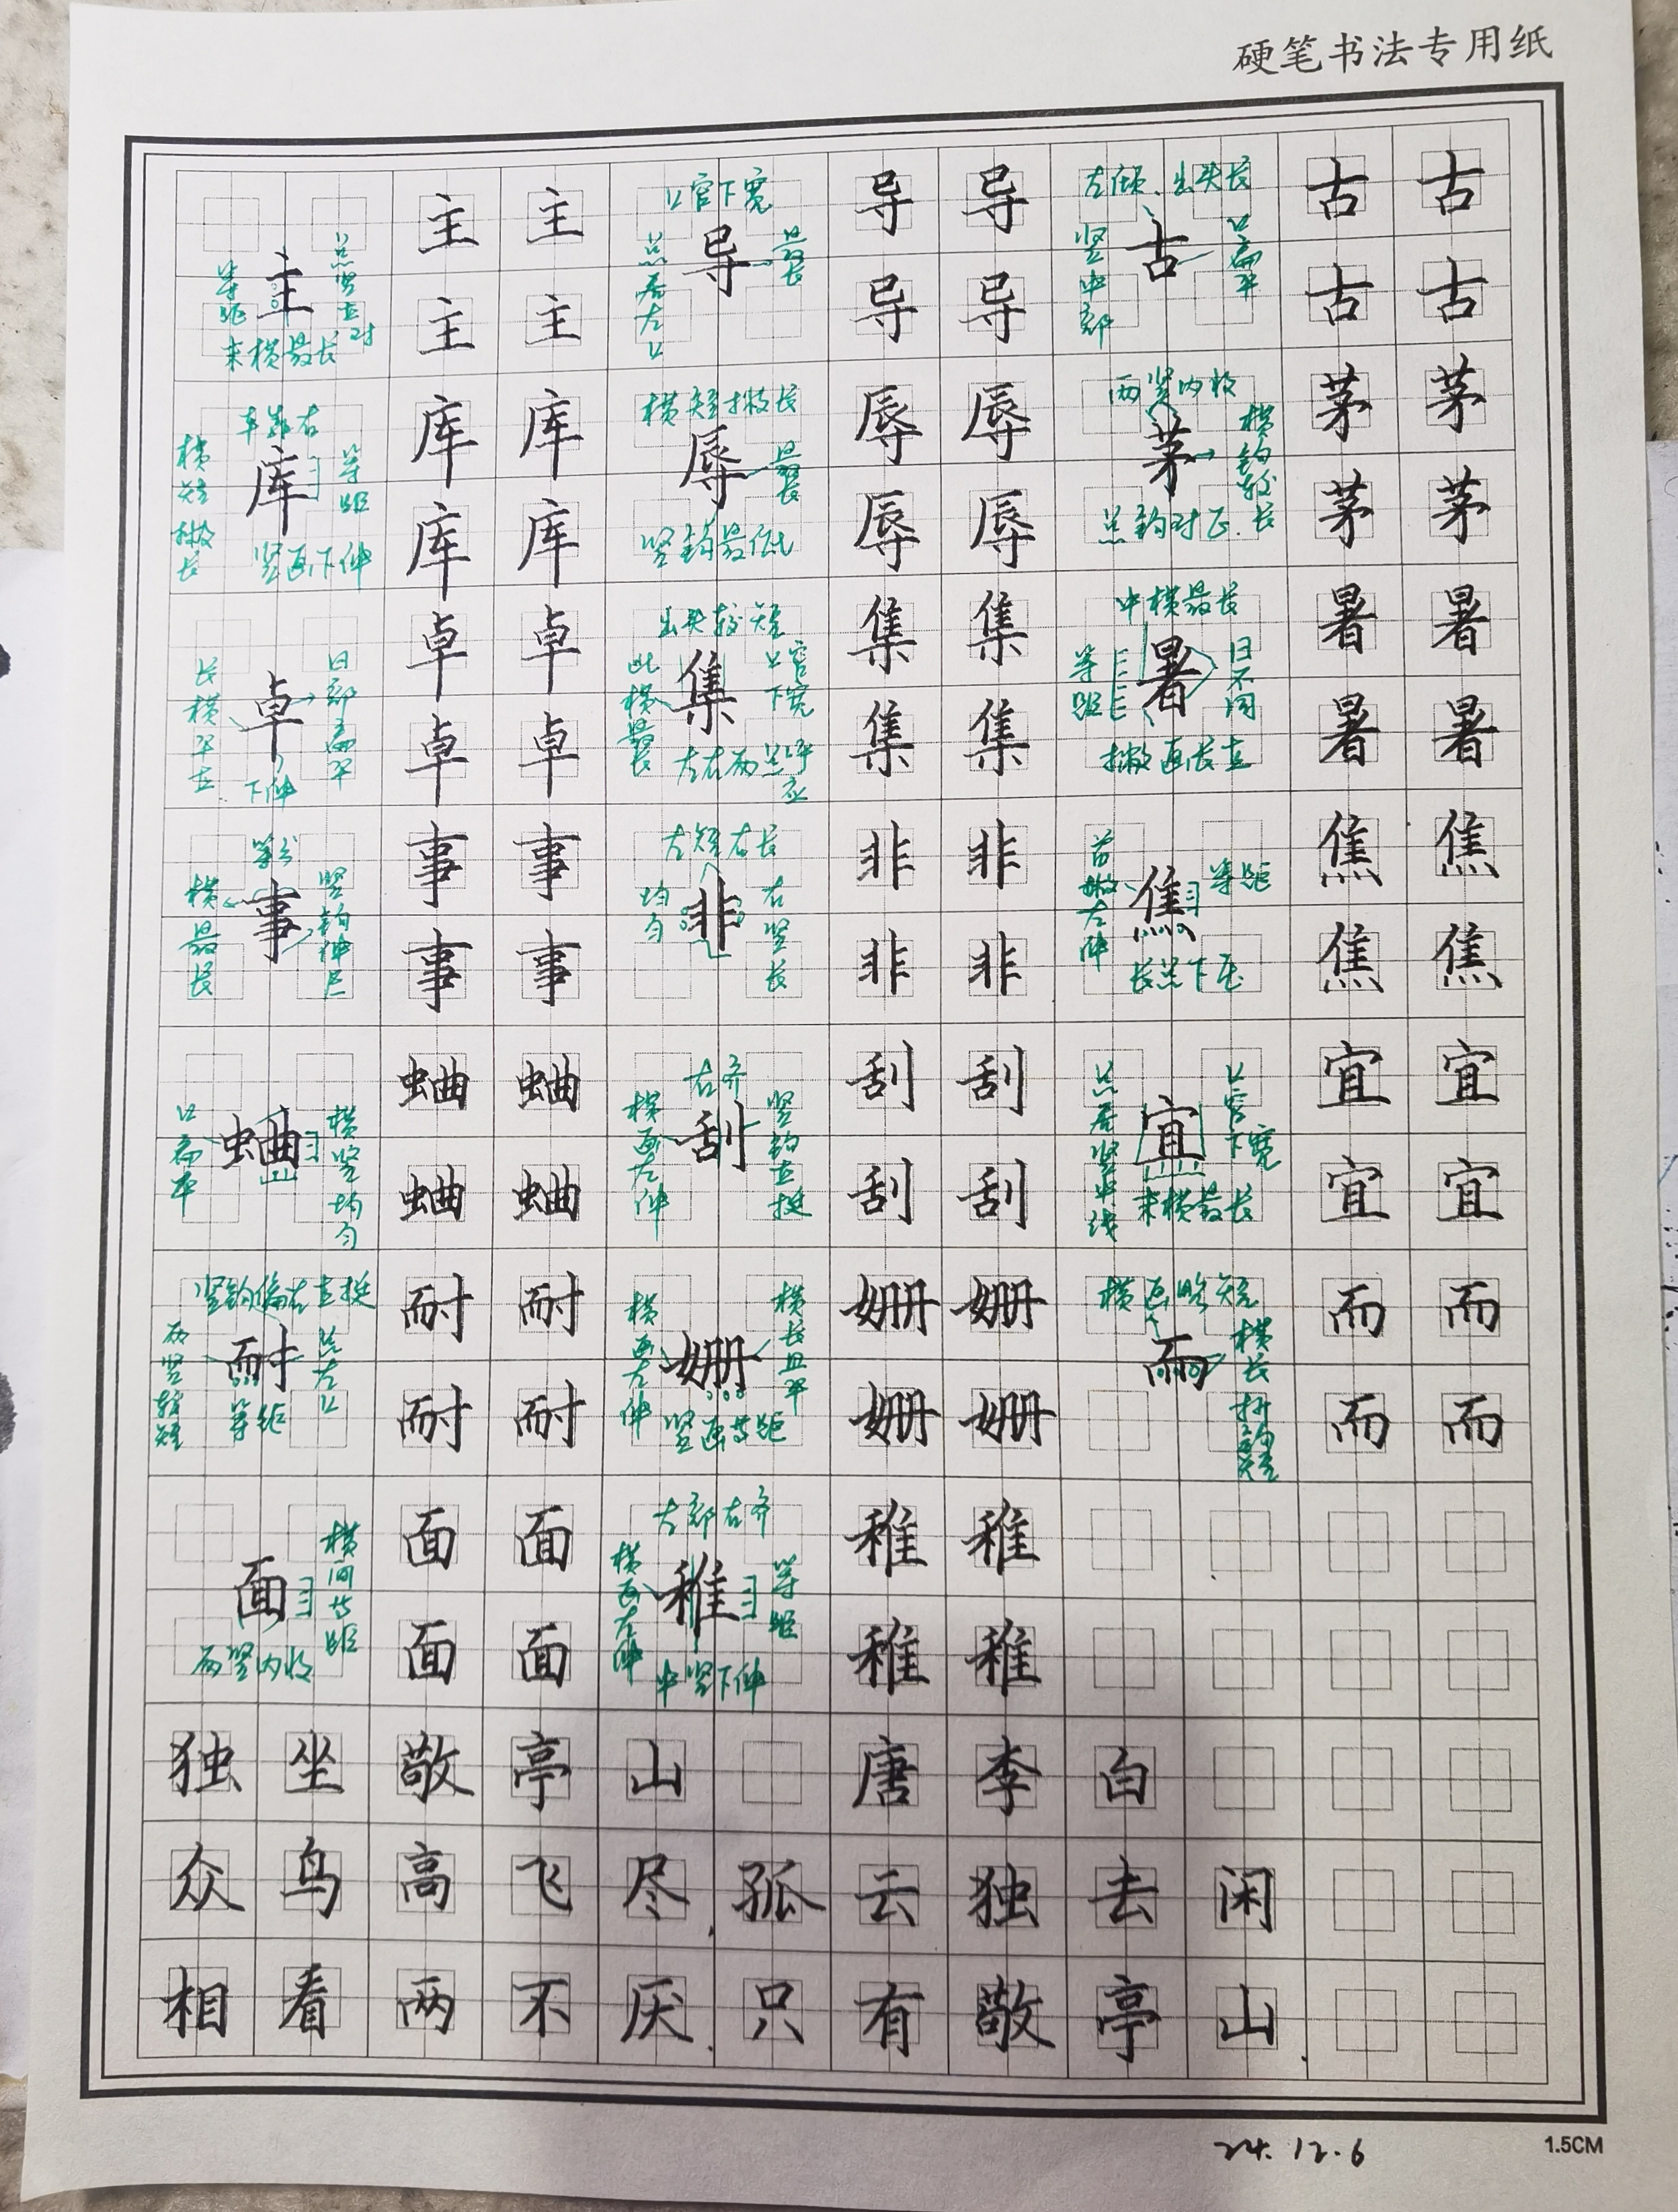 硬笔书法专用纸
主 点竖直对 等距 末横最长
主 主
主 主
导 上窄下宽 最长 点居左上
导 导
导 导
古 左倾、出头长 口扁平 竖中部
古 古
古 古
库 车靠右 横短撇长 等距 竖画下伸
库 库
库 库
辱 横短撇长 最长 竖钩最低
辱 辱
辱 辱
茅 两竖内收 横钩较长 点钩对正
茅 茅
茅 茅
卓 长横平直 日部扁平 下伸
卓 卓
卓 卓
集 出头较短 此横最长 上窄下宽 左右两点呼应
集 集
集 集
暑 中横最长 等距 日不同 撇画长直
暑 暑
暑 暑
事 等分 横最长 竖钩伸长
事 事
事 事
非 左短右长 均匀 右竖长
非 非
非 非
焦 首撇左伸 等距 长点下压
焦 焦
焦 焦
蛐 口扁平 横竖均匀
蛐 蛐
蛐 蛐
刮 右齐 横画左伸 竖钩直挺
刮 刮
刮 刮
宜 点居竖中线 上窄下宽 末横最长
宜 宜
宜 宜
耐 竖钩偏右直挺 两竖较短 点左上 等距
耐 耐
耐 耐
姗 横画左伸 横长且平 竖画等距
姗 姗
姗 姗
而 横画略短 横长折钩短
而 而
而 而
面 横间等距 两竖内收
面 面
面 面
稚 左部右齐 横画左伸 等距 中竖下伸
稚 稚
稚 稚
独坐敬亭山 唐李白
众鸟高飞尽孤云独去闲
相看两不厌只有敬亭山
24.12.6
1.5CM